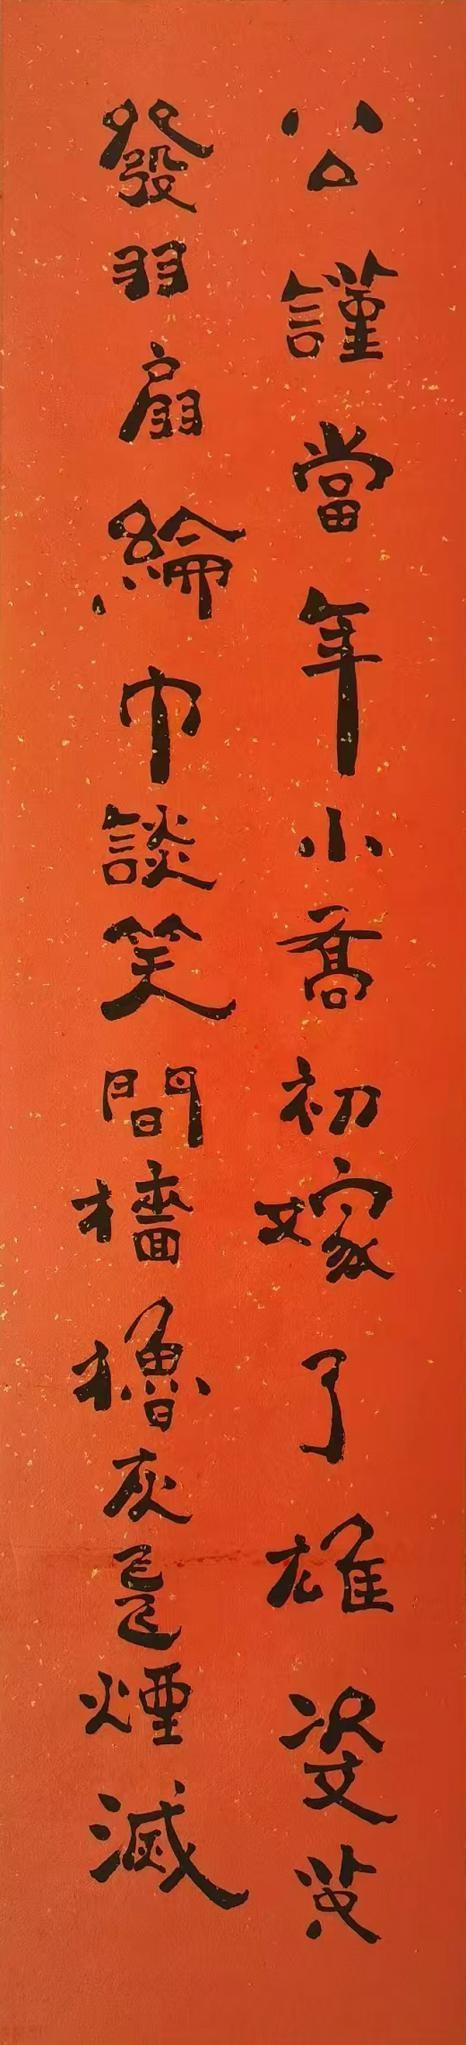 公謹當年小喬初嫁了雄姿英
發羽扇綸巾談笑間檣櫓灰飛煙滅